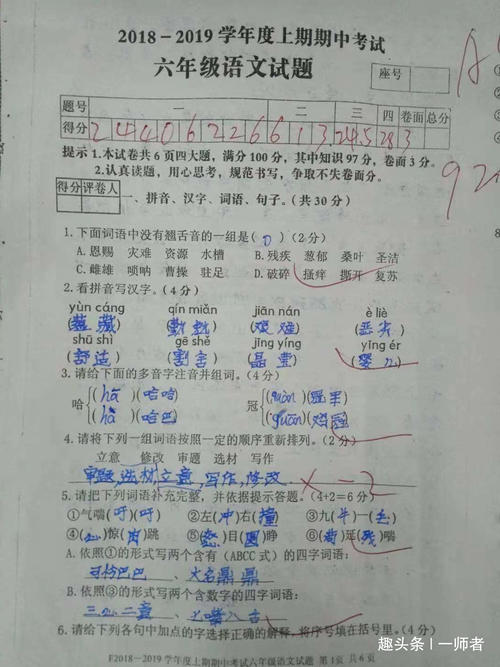 2018－2019学年度上期期中考试
六年级语文试题
座号
题号 一 二 三 四 卷面 总分
得分 2 4 4 0 6 2 2 6 6 1 3 24.5 28 3
提示 1.本试卷共6页四大题，满分100分，其中知识97分，卷面3分。
2.认真读题，用心思考，规范书写，争取不失卷面分。
得分 评卷人
一、拼音、汉字、词语、句子。（共30分）
1.下面词语中没有翘舌音的一组是( D )(2分)
A.恩赐 灾难 资源 水槽 B.残疾 葱郁 桑叶 圣洁
C.雌雄 唢呐 曹操 驻足 D.破碎 搔痒 撕开 复苏
2.看拼音写汉字。（4分）
yùn cáng qín miǎn jiān nán è liè
(蕴藏) (勤勉) (艰难) (恶劣)
shū shì gē shě jīng yíng yīng ér
(舒适) (割舍) (晶莹) (婴儿)
3.请给下面的多音字注音并组词。（4分）
哈 (hā)(哈哈) 冠 (guàn)(冠军)
(hǎ)(哈巴) (guān)(鸡冠)
4.请将下列一组词语按照一定的顺序重新排列。（2分）
立意 修改 审题 选材 写作
审题,选材,立意,写作,修改. -2
5.请把下列词语补充完整，并依据提示答题。（4+2=6分）
①气喘(吁)(吁) ②左(冲)右(撞) ③九(牛)一(毛)
④(心)惊(肉)跳 ⑤(怒)目(圆)睁 ⑥(苟)延(残)喘
A.依照①的形式写两个含有(ABCC式)的四字词语：
可怜巴巴、大名鼎鼎
B.依照③的形式写两个含有数字的四字词语：
三心二意、七嘴八舌
6.请给下列各句中加点的字选择正确的解释，将序号填在括号里。（4分）
F2018－2019学年度上期期中考试六年级语文试题 第1页 共6页
趣头条！一师者